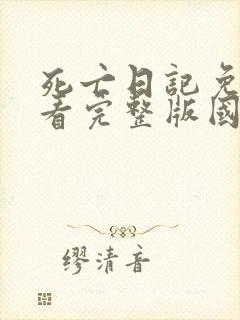 死亡日記免
看完整版國
缪清音